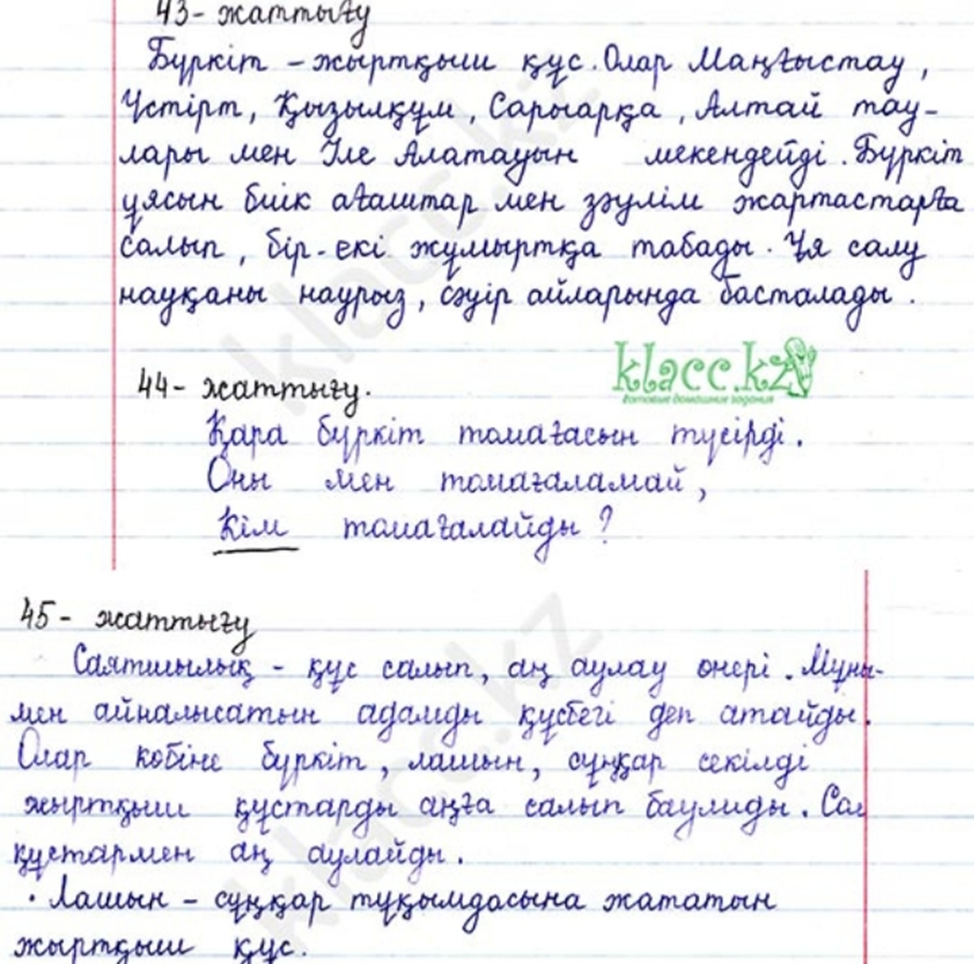 43- жаттығу
Бүркіт – жыртқыш құс. Олар Маңғыстау,
Үстірт, Қызылқұм, Сарыарқа, Алтай тау-
лары мен Іле Алатауын мекендейді. Бүркіт
ұясын биік ағаштар мен зәулім жартастарға
салып, бір-екі жұмыртқа табады. Ұя салу
науқаны наурыз, сәуір айларында басталады.
klacc.kz
готовые домашние задания
44- жаттығу.
Қара бүркіт томағасын түсірді.
Оны мен томағаламай,
Кім томағалайды?
45- жаттығу
Саятшылық - құс салып, аң аулау өнері. Мұны-
мен айналысатын адамды құсбегі деп атайды.
Олар көбіне бүркіт, лашын, сұңқар секілді
жыртқыш құстарды аңға салып баулиды. Сол
құстармен аң аулайды.
· Лашын – сұңқар тұқымдасына жататын
жыртқыш құс.